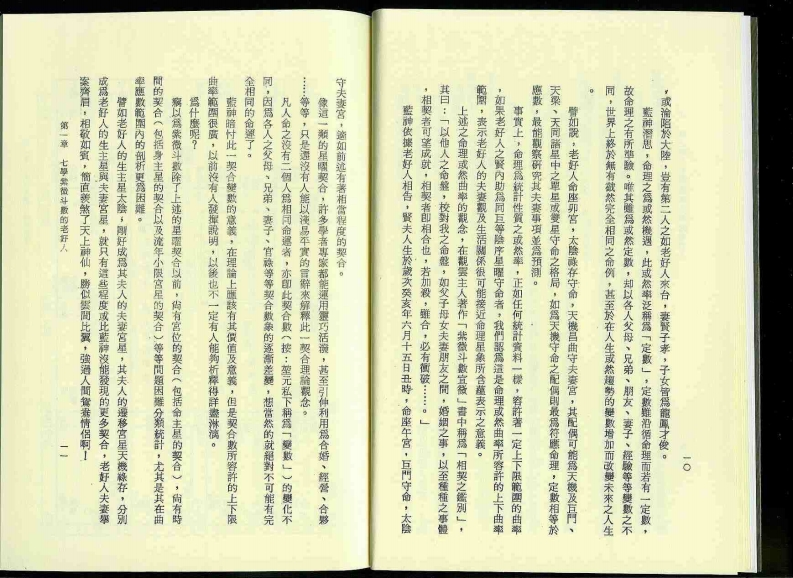 ，或淪陷於大陸，豈有第二人之如老好人來台，妻賢子孝，子女皆爲龍鳳才俊。
藍神潛思，命理之爲或然機遇，此或然率泛稱爲「定數」，定數雖沿循命理而若有一定數，
故命理之有所準驗。唯其雖爲或然定數，却以各人父母、兄弟、朋友、妻子、經驗等等變數之不
同，世界上終於無有截然完全相同之命例，甚至於在人生或然趨勢的變數增加而改變未來之人生
。
譬如說，老好人命座卯宮，太陰祿存守命，天機昌曲守夫妻宮，其配偶可能爲天機及巨門、
天梁、天同諸星中之單星或雙星守命之格局，如爲天機守命之配偶則最爲符應命理，定數相等於
應數，最能觀察研究其夫妻事項並爲預測。
事實上，命理爲統計性質之或然率，正如任何統計資料一樣，容許著一定上下限範圍的曲率
，如果老好人之賢內助爲同巨等陰序星曜守命者，我們認爲這是命理或然曲率所容許的上下曲率
範圍，表示老好人的夫妻觀及生活關係很可能接近命理星象所含蘊表示之意義。
上述之命理或然曲率的觀念，在觀雲主人著作「紫微斗數宣微」書中稱爲「相契之鑑別」，
其曰：「以他人之命盤，校對我之命盤，如父子母女夫妻朋友之間，婚姻之事，以至種種之事體
，相契者可望成就，相契者卽相合也，若加殺，雖合，必有衝破……。」
藍神依據老好人相告，賢夫人生於歲次癸亥年六月十五日丑時，命座午宮，巨門守命，太陰
一〇
守夫妻宮，鐃如前述有著相當程度的契合。
像這一類的星曜契合，許多學者專家都能運用靈巧活潑，甚至引伸利用爲合婚、經營、合夥
……等等，只是還沒有人能以淺易平實的言辭來解釋此一契合理論觀念。
凡人命之沒有二個人爲相同命運者，亦卽此契合數（按：堃元私下稱爲「變數」）的變化不
同，因爲各人之父母、兄弟、妻子、官祿等等契合數象的逐漸差變，想當然的就絕對不可能有完
全相同的命運了。
藍神暗忖此一契合變數的意義，在理論上應該有其價值及意義，但是契合數所容許的上下限
曲率範圍很廣，以前沒有人發揮說明，以後也不一定有人能夠析釋得詳盡淋漓。
爲什麼呢？
竊以爲紫微斗數除了上述的星曜契合以前，尚有宮位的契合（包括命主星的契合），尚有時
間的契合（包括身主星的契合以及流年小限宮星的契合）等等問題困難分類統計，尤其是其在曲
率應數範圍內的剖析更爲困難。
譬如老好人的生主星太陰，剛好成爲其夫人的夫妻宮星，其夫人的遷移宮星天機祿存，分別
成爲老好人的生主星與夫妻宮星，就只有這些程度或比藍神沒能發現的更多契合，老好人夫妻舉
案齊眉，相敬如賓，簡直羨煞了天上神仙，勝似雲間比翼，強過人間鴛鴦情侶啊！
第一章　七學紫微斗數的老好人
一一